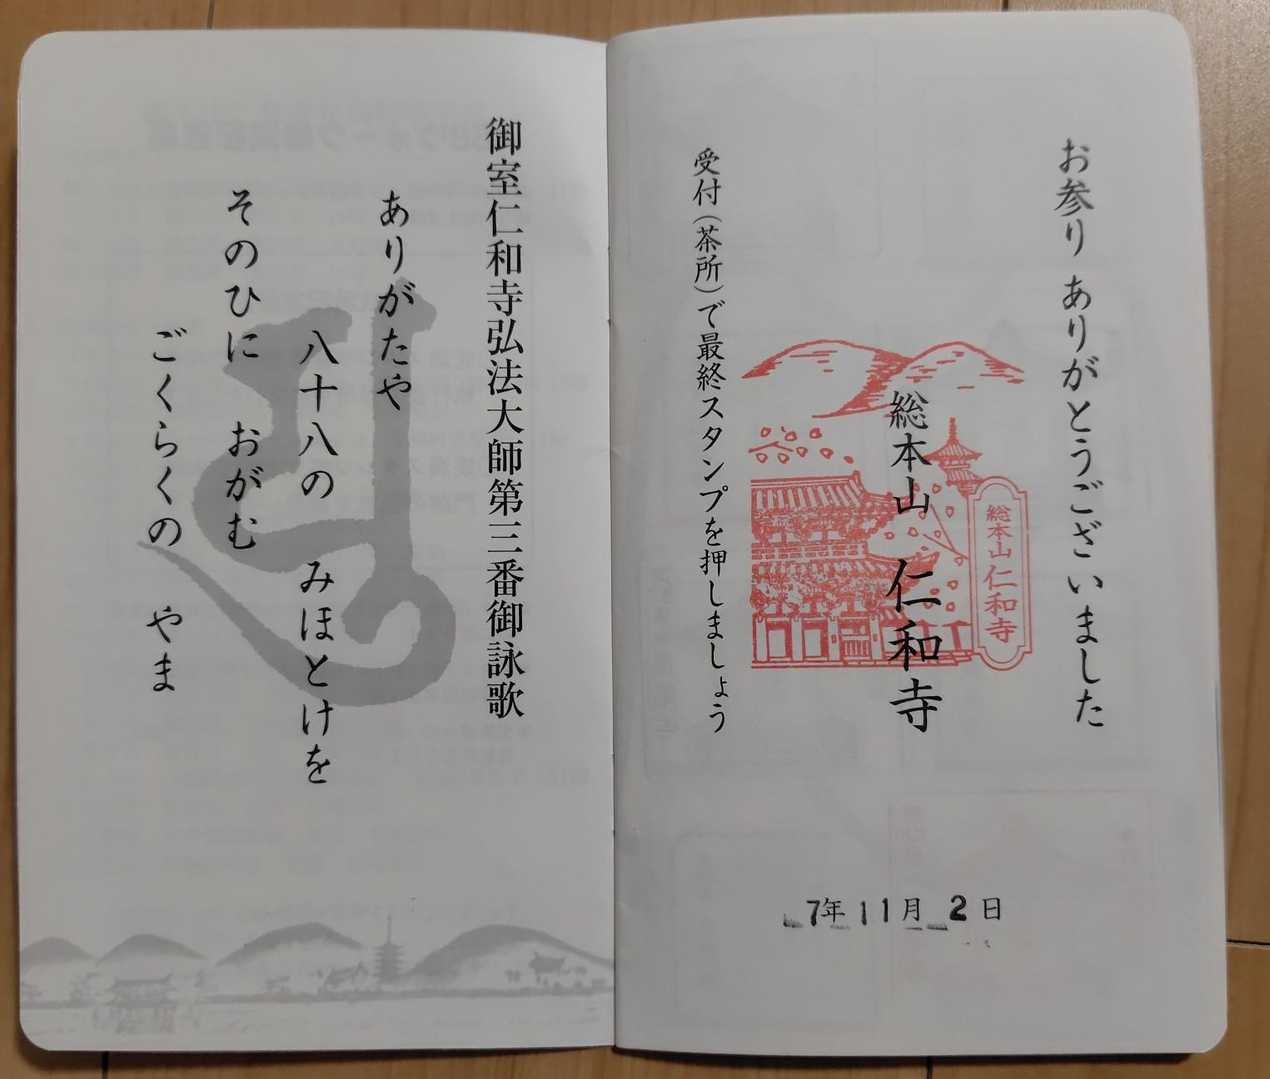 お参り ありがとうございました
総本山 仁和寺
総本山仁和寺
受付(茶所)で最終スタンプを押しましょう
7年11月2日
御室仁和寺弘法大師第三番御詠歌
ありがたや
八十八の みほとけを
そのひに おがむ
ごくらくの やま